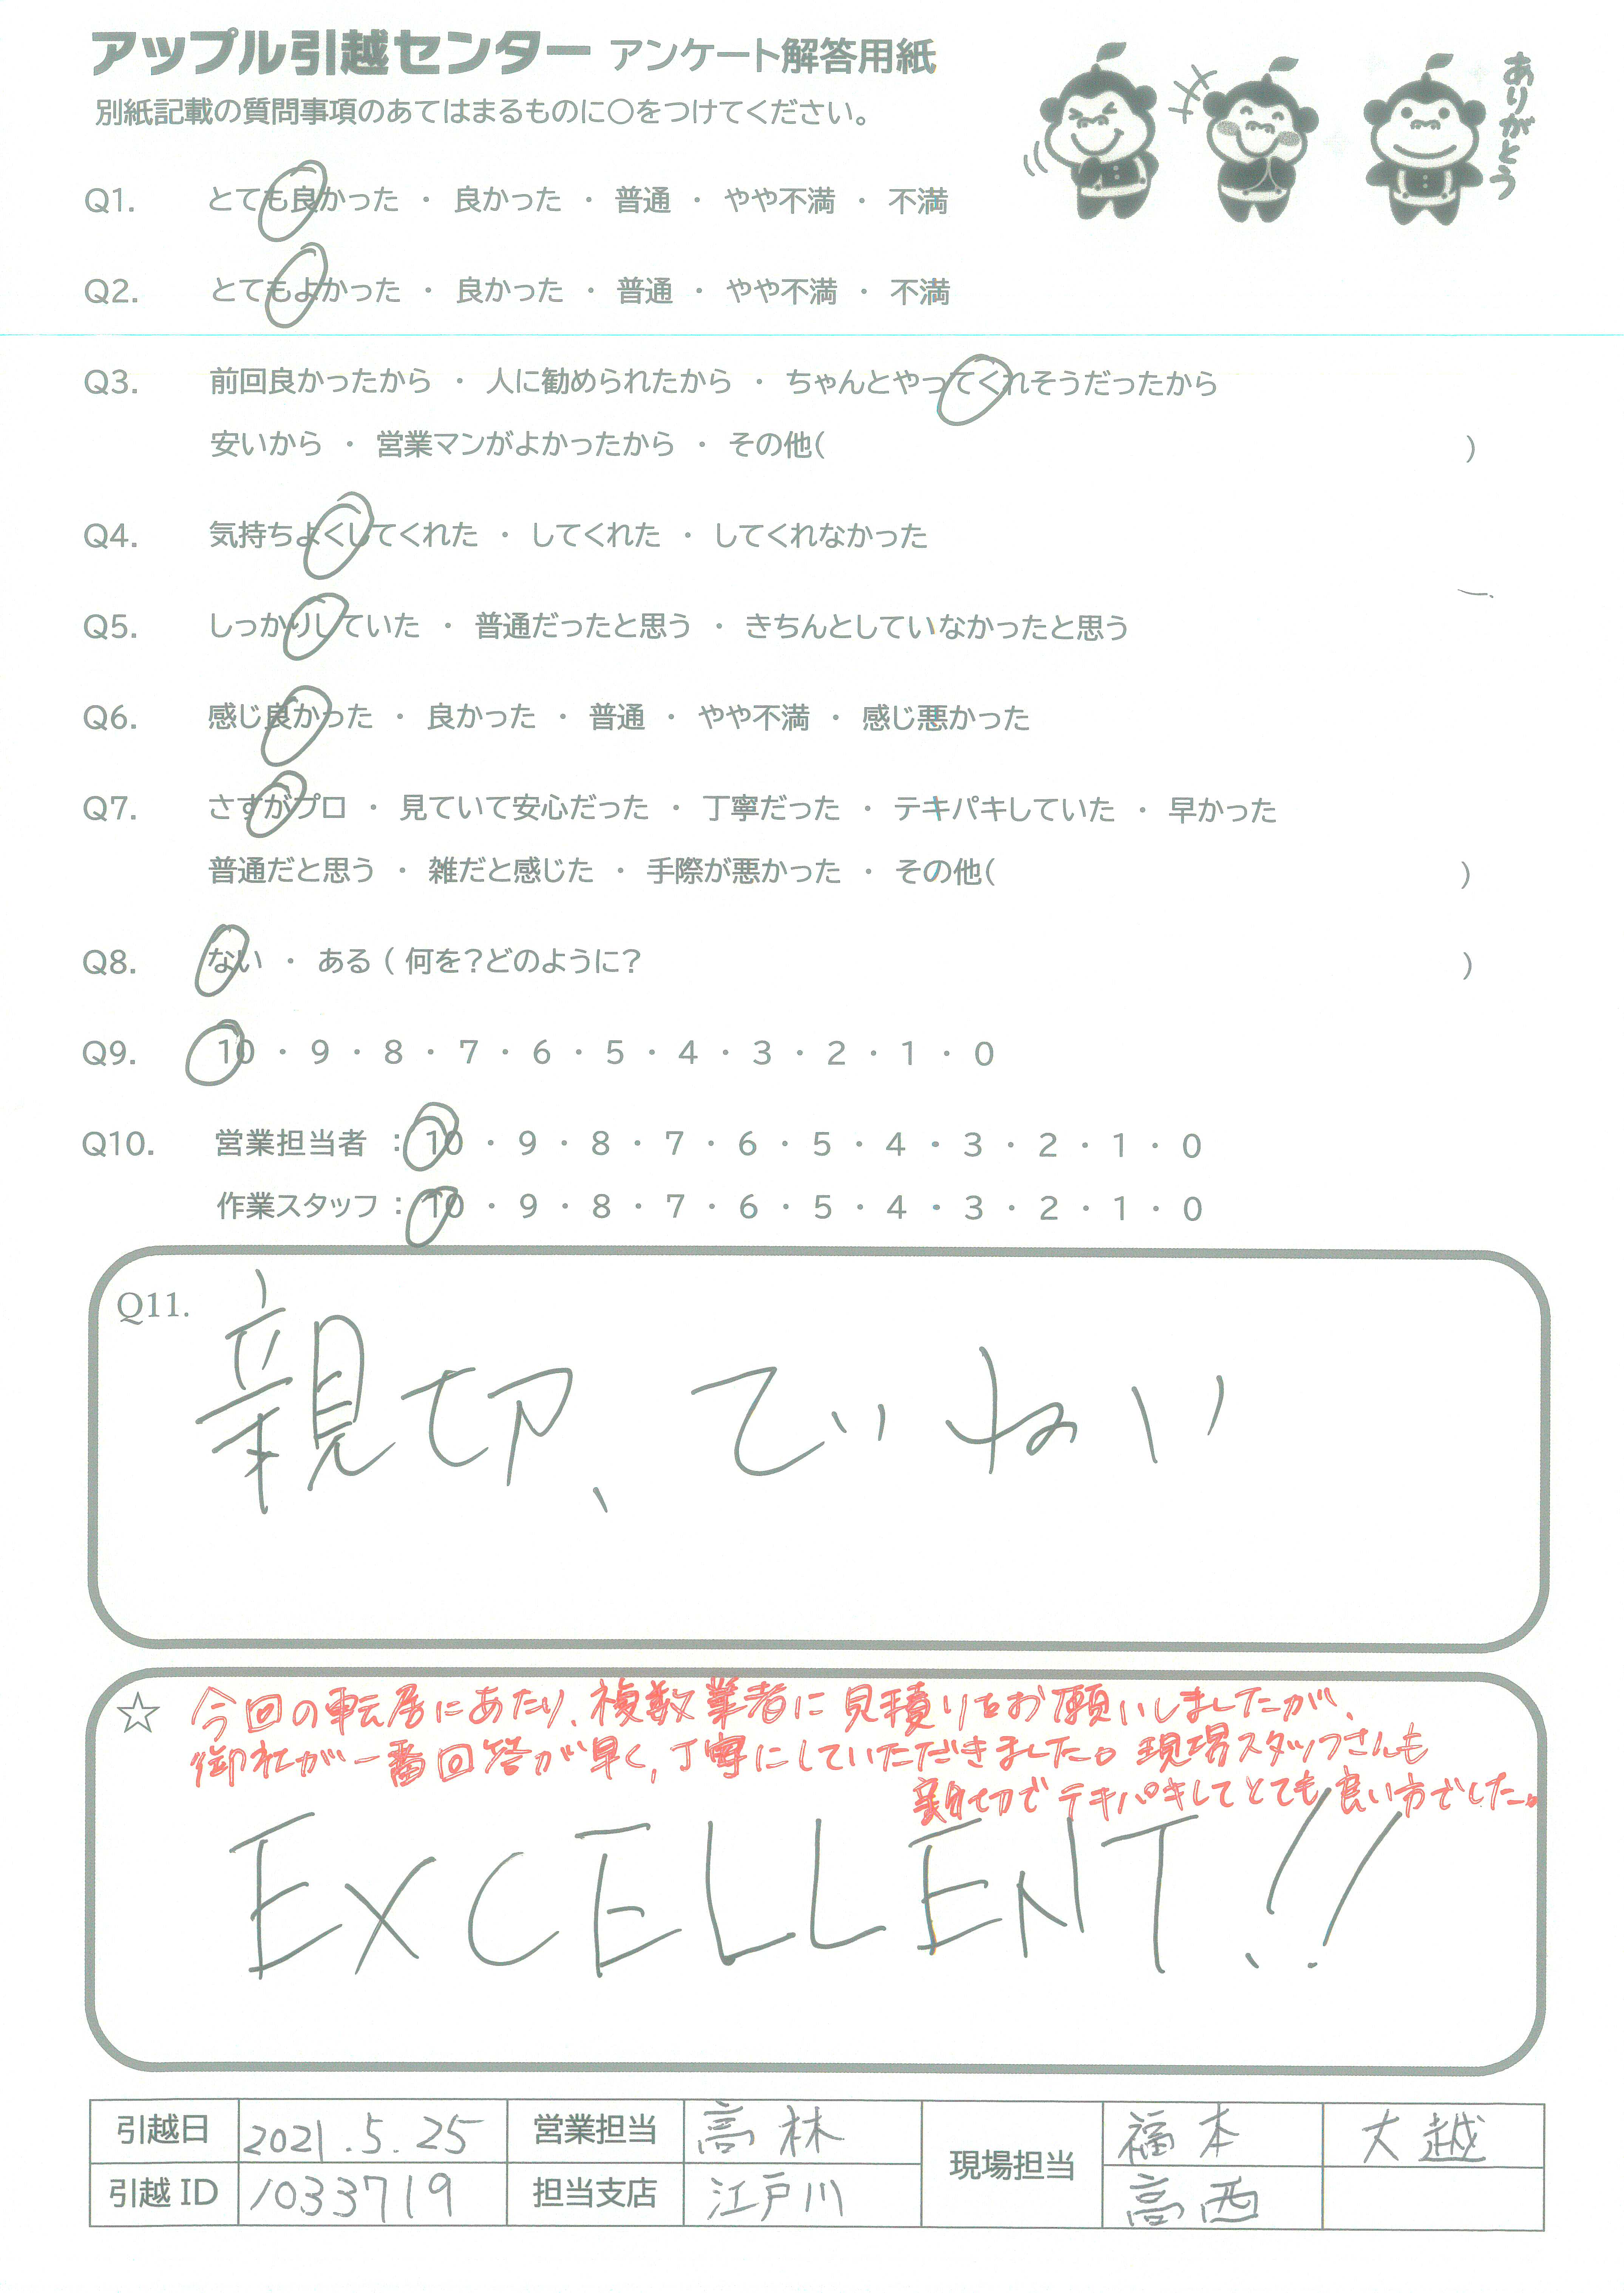 アップル引越センター アンケート解答用紙
ありがとう
別紙記載の質問事項のあてはまるものに○をつけてください。
Q1. とても良かった ・ 良かった ・ 普通 ・ やや不満 ・ 不満
Q2. とてもよかった ・ 良かった ・ 普通 ・ やや不満 ・ 不満
Q3. 前回良かったから ・ 人に勧められたから ・ ちゃんとやってくれそうだったから
安いから ・ 営業マンがよかったから ・ その他( )
Q4. 気持ちよくしてくれた ・ してくれた ・ してくれなかった
Q5. しっかりしていた ・ 普通だったと思う ・ きちんとしていなかったと思う
Q6. 感じ良かった ・ 良かった ・ 普通 ・ やや不満 ・ 感じ悪かった
Q7. さすがプロ ・ 見ていて安心だった ・ 丁寧だった ・ テキパキしていた ・ 早かった
普通だと思う ・ 雑だと感じた ・ 手際が悪かった ・ その他( )
Q8. ない ・ ある ( 何を?どのように? )
Q9. 10 ・ 9 ・ 8 ・ 7 ・ 6 ・ 5 ・ 4 ・ 3 ・ 2 ・ 1 ・ 0
Q10. 営業担当者 : 10 ・ 9 ・ 8 ・ 7 ・ 6 ・ 5 ・ 4 ・ 3 ・ 2 ・ 1 ・ 0
作業スタッフ : 10 ・ 9 ・ 8 ・ 7 ・ 6 ・ 5 ・ 4 ・ 3 ・ 2 ・ 1 ・ 0
Q11.
親切、ていねい
☆ 今回の転居にあたり、複数業者に見積りをお願いしましたが、
御社が一番回答が早く、丁寧にしていただきました。現場スタッフさんも
親切でテキパキしてとても良い方でした。
EXCELLENT!!
引越日 2021.5.25 営業担当 高林 現場担当 福本 大越
引越 ID 1033719 担当支店 江戸川 高西